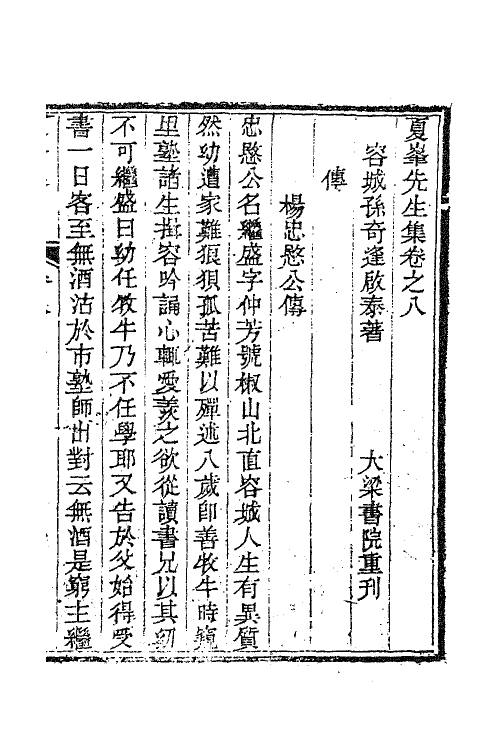 夏峯先生集卷之八
容城孫奇逢啟泰著　大梁書院重刊
傳
楊忠愍公傳
忠愍公名繼盛字仲芳號椒山北直容城人生有異質
然幼遭家難狼狽孤苦難以殫述八歲即善牧牛時窺
里塾諸生揖容吟誦心輒愛羨之欲從讀書兄以其幼
不可繼盛曰幼任牧牛乃不任學耶又告於父始得受
書一日客至無酒沽於市塾師出對云無酒是窮主繼